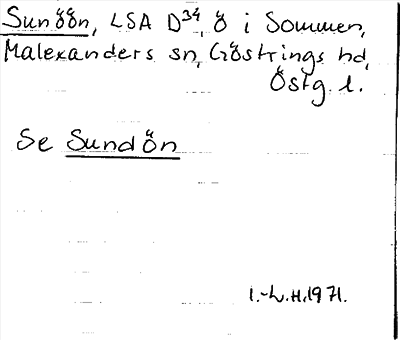 Sunöön, LSA D34, ö i Sommen,
Malexanders sn, Göstrings hd,
Östg. l.
Se Sundön
I.-L.H. 1971.